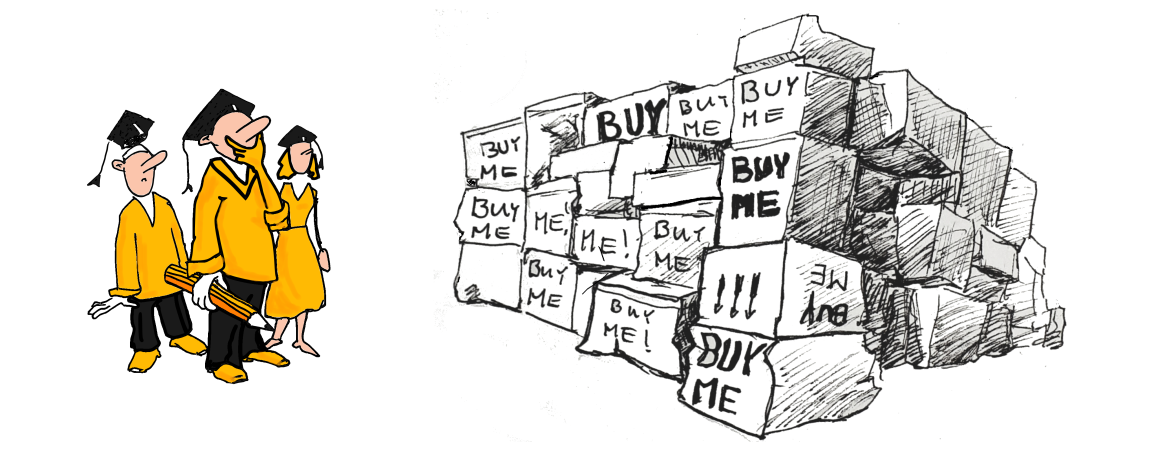 BUY
ME
BUY
BUY
ME
BUY
ME
BUY
ME
BUY
ME
ME!
ME!
BUY
ME
BUY
ME
BUY
ME!
BUY
ME
BUY
ME